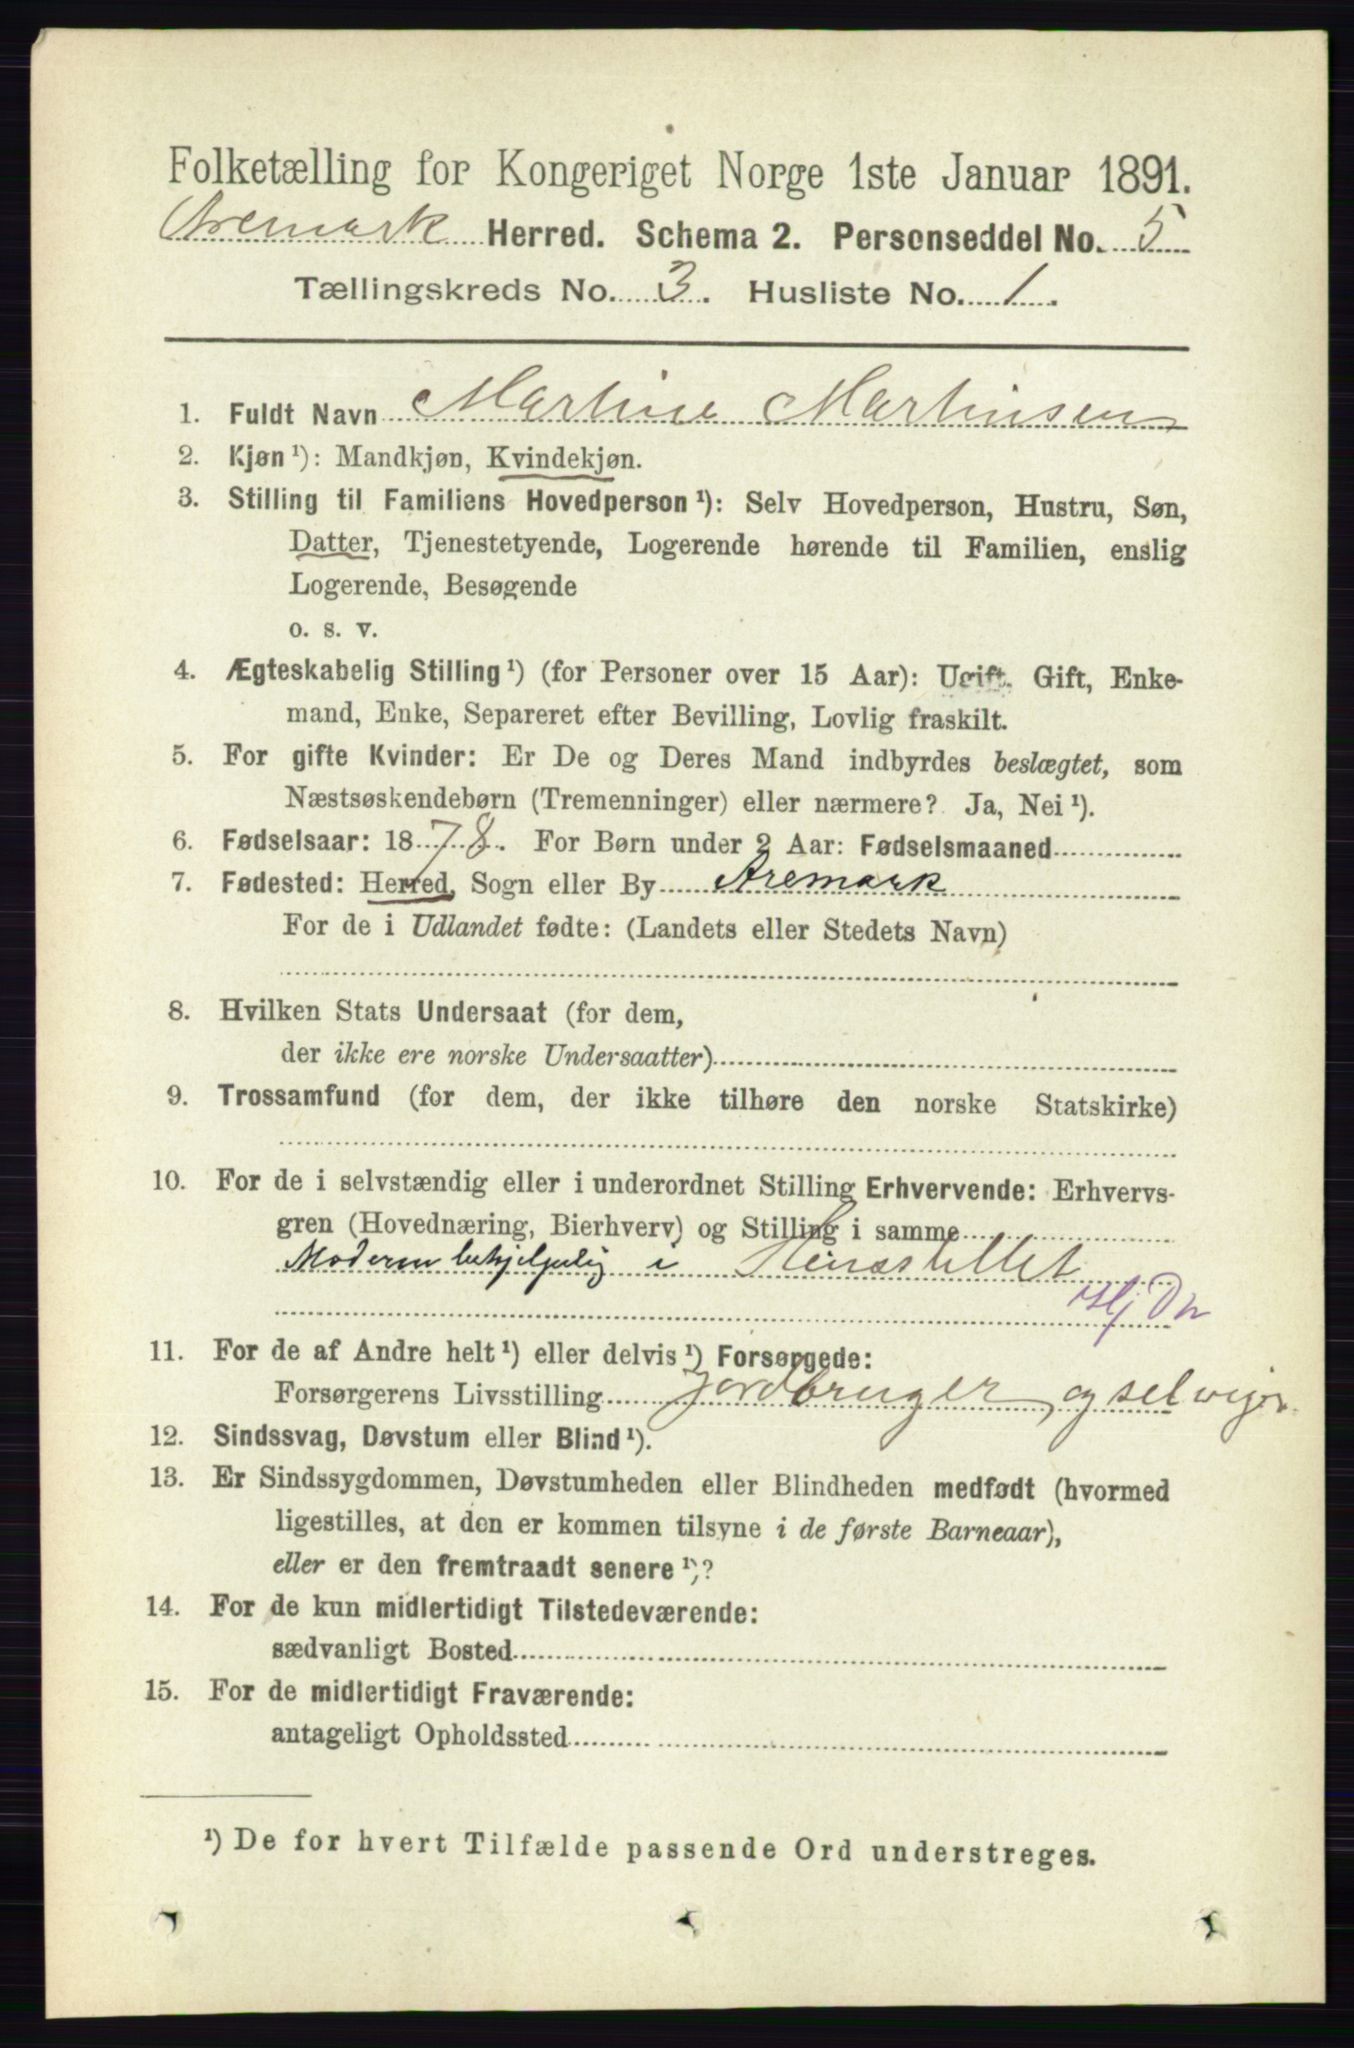 Folketælling for Kongeriget Norge 1ste Januar 1891.
Aremark Herred. Schema 2. Personseddel No. 5
Tællingskreds No. 3. Husliste No. 1.
1. Fuldt Navn Martine Martinsen
2. Kjøn ¹): Mandkjøn, Kvindekjøn.
3. Stilling til Familiens Hovedperson ¹): Selv Hovedperson, Hustru, Søn,
Datter, Tjenestetyende, Logerende hørende til Familien, enslig
Logerende, Besøgende
o. s. v.
4. Ægteskabelig Stilling ¹) (for Personer over 15 Aar): Ugift, Gift, Enke-
mand, Enke, Separeret efter Bevilling, Lovlig fraskilt.
5. For gifte Kvinder: Er De og Deres Mand indbyrdes beslægtet, som
Næstsøskendebørn (Tremenninger) eller nærmere? Ja, Nei ¹).
6. Fødselsaar: 1878. For Børn under 2 Aar: Fødselsmaaned
7. Fødested: Herred, Sogn eller By Aremark
For de i Udlandet fødte: (Landets eller Stedets Navn)
8. Hvilken Stats Undersaat (for dem,
der ikke ere norske Undersaatter)
9. Trossamfund (for dem, der ikke tilhøre den norske Statskirke)
10. For de i selvstændig eller i underordnet Stilling Erhvervende: Erhvervs-
gren (Hovednæring, Bierhverv) og Stilling i samme
Moderen behjelpelig i
Hj Dr
11. For de af Andre helt ¹) eller delvis ¹) Forsørgede:
Forsørgerens Livsstilling Jordbruger og selveier
12. Sindssvag, Døvstum eller Blind ¹).
13. Er Sindssygdommen, Døvstumheden eller Blindheden medfødt (hvormed
ligestilles, at den er kommen tilsyne i de første Barneaar),
eller er den fremtraadt senere ¹)?
14. For de kun midlertidigt Tilstedeværende:
sædvanligt Bosted
15. For de midlertidigt Fraværende:
antageligt Opholdssted
¹) De for hvert Tilfælde passende Ord understreges.